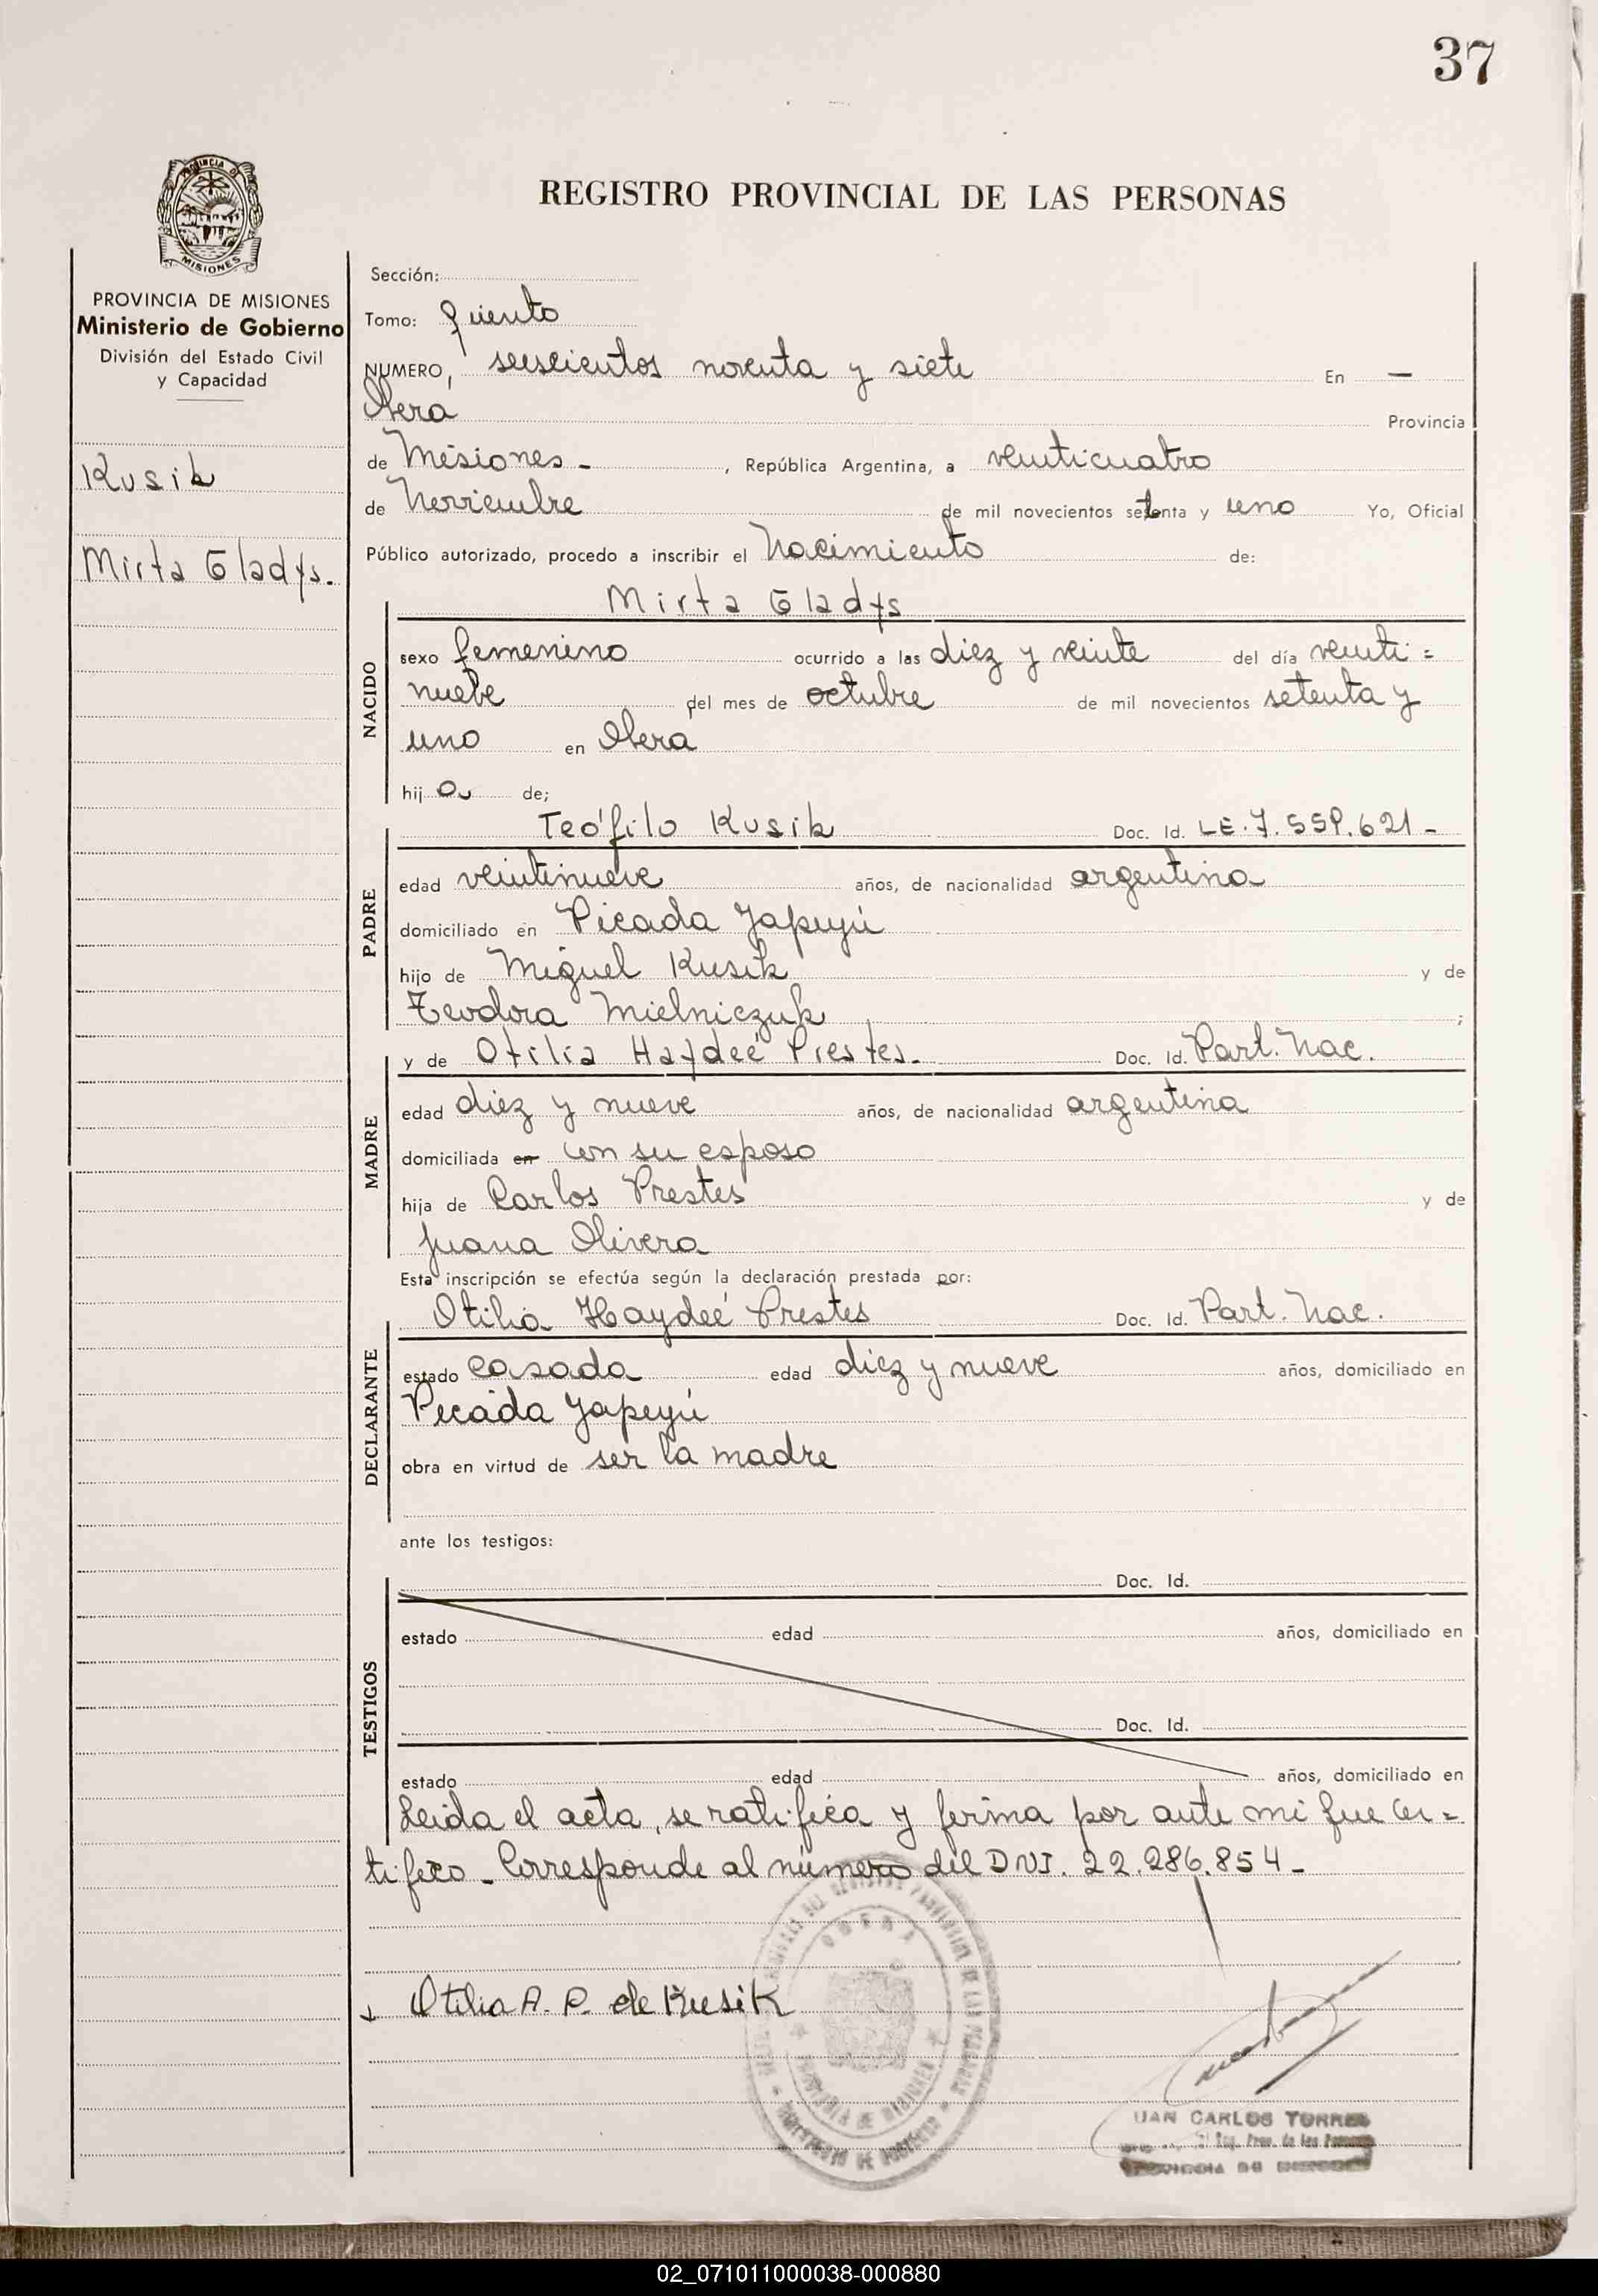 37
REGISTRO PROVINCIAL DE LAS PERSONAS
PROVINCIA DE MISIONES
Ministerio de Gobierno
División del Estado Civil
y Capacidad
Kusik
Mirta Gladys.
Sección:
Tomo: Quinto
NUMERO, seiscientos noventa y siete En —
Oberá Provincia
de Misiones - , República Argentina, a veinticuatro
de Noviembre de mil novecientos setenta y uno Yo, Oficial
Público autorizado, procedo a inscribir el Nacimiento de:
Mirta Gladys
NACIDO
sexo femenino ocurrido a las diez y veinte del día veinti=
nueve del mes de octubre de mil novecientos setenta y
uno en Oberá
hij a de;
PADRE
Teófilo Kusik Doc. Id. LE. 7.559.621-
edad veintinueve años, de nacionalidad argentina
domiciliado en Picada Yapeyú
hijo de Miguel Kusik y de
Teodora Mielniczuk ;
MADRE
y de Otilia Haydeé Prestes. Doc. Id. Part. Nac.
edad diez y nueve años, de nacionalidad argentina
domiciliada en con su esposo
hija de Carlos Prestes y de
Juana Olivera
Esta inscripción se efectúa según la declaración prestada por:
DECLARANTE
Otilia Haydeé Prestes Doc. Id. Part. Nac.
estado casada edad diez y nueve años, domiciliado en
Picada Yapeyú
obra en virtud de ser la madre
ante los testigos:
TESTIGOS
Doc. Id.
estado edad años, domiciliado en
Doc. Id.
estado edad años, domiciliado en
Leida el acta, se ratifica y firma por ante mi que cer=
tifico - Corresponde al número del DNI. 22.286.854-
Otilia A. P. de Kusik
OBERA
PROVINCIA DE MISIONES
MINISTERIO DE GOBIERNO
JUAN CARLOS TORRES
Reg. Prov. de las Personas
PROVINCIA DE MISIONES
02_071011000038-000880